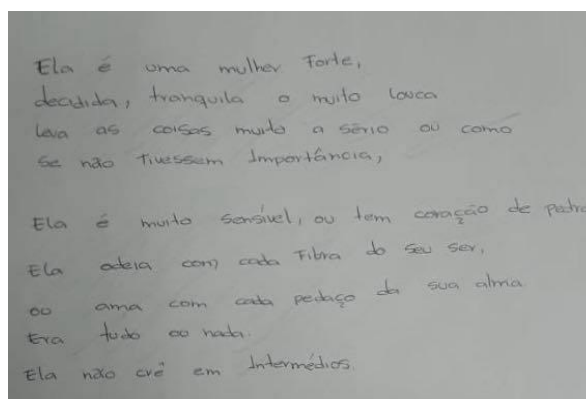 Ela é uma mulher Forte,
decidida, tranquila o muito louca
leva as coisas muito a sério ou como
se não Tivessem Importância,
Ela é muito sensível, ou tem coração de pedra
Ela odeia com cada Fibra do seu ser,
ou ama com cada pedaço da sua alma
Era tudo ou nada.
Ela não crê em Intermédios.